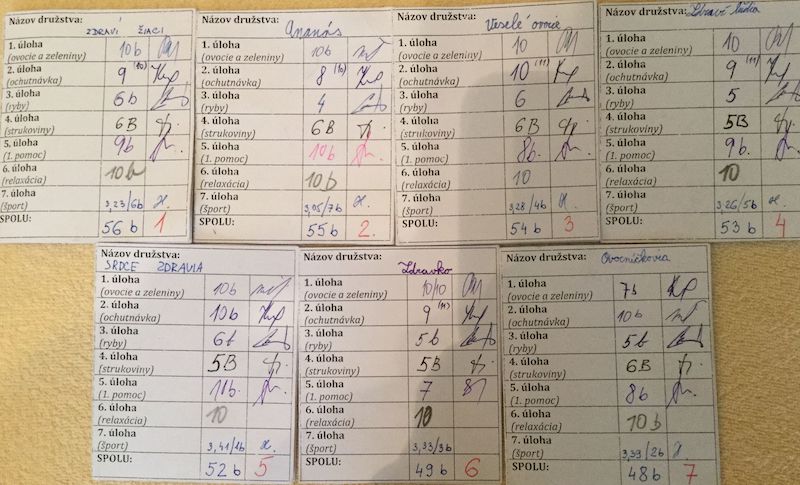 Názov družstva:
ZDRAVÍ ŽIACI
1. úloha 10b
(ovocie a zeleniny)
2. úloha 9 (10)
(ochutnávka)
3. úloha 6b
(ryby)
4. úloha 6B
(strukoviny)
5. úloha 9b
(1. pomoc)
6. úloha 10b
(relaxácia)
7. úloha 3,23/6b
(šport)
SPOLU: 56 b 1
Názov družstva:
Ananás
1. úloha 10b
(ovocie a zeleniny)
2. úloha 8 (10)
(ochutnávka)
3. úloha 4
(ryby)
4. úloha 6B
(strukoviny)
5. úloha 10b
(1. pomoc)
6. úloha 10b
(relaxácia)
7. úloha 3,05/7b
(šport)
SPOLU: 55b 2.
Názov družstva:
Veselé ovocie
1. úloha 10
(ovocie a zeleniny)
2. úloha 10 (11)
(ochutnávka)
3. úloha 6
(ryby)
4. úloha 6B
(strukoviny)
5. úloha 8b.
(1. pomoc)
6. úloha 10
(relaxácia)
7. úloha 3,28/4b
(šport)
SPOLU: 54 b 3
Názov družstva:
Zdraví ľudia
1. úloha 10
(ovocie a zeleniny)
2. úloha 9 (11)
(ochutnávka)
3. úloha 5
(ryby)
4. úloha 5B
(strukoviny)
5. úloha 9b.
(1. pomoc)
6. úloha 10
(relaxácia)
7. úloha 3,26/5b
(šport)
SPOLU: 53 b 4
Názov družstva:
SRDCE ZDRAVIA
1. úloha 10b
(ovocie a zeleniny)
2. úloha 10b
(ochutnávka)
3. úloha 6b
(ryby)
4. úloha 5B
(strukoviny)
5. úloha 10b.
(1. pomoc)
6. úloha 10
(relaxácia)
7. úloha 3,41/1b
(šport)
SPOLU: 52 b 5
Názov družstva:
Zdravko
1. úloha 10/10
(ovocie a zeleniny)
2. úloha 9 (11)
(ochutnávka)
3. úloha 5b
(ryby)
4. úloha 5B
(strukoviny)
5. úloha 7
(1. pomoc)
6. úloha 10
(relaxácia)
7. úloha 3,33/3b
(šport)
SPOLU: 49 b 6
Názov družstva:
Ovocníčkovia
1. úloha 7b
(ovocie a zeleniny)
2. úloha 10b
(ochutnávka)
3. úloha 5b
(ryby)
4. úloha 6B
(strukoviny)
5. úloha 8b
(1. pomoc)
6. úloha 10b
(relaxácia)
7. úloha 3,39/2b
(šport)
SPOLU: 48b 7